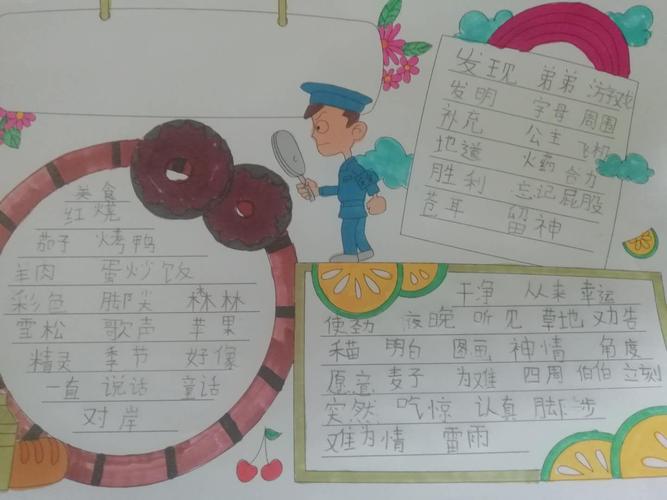 美食
红烧
茄子 烤鸭
羊肉 蛋炒饭
彩色 脚尖 森林
雪松 歌声 苹果
精灵 季节 好像
一直 说话 童话
对岸
发现 弟弟 游戏
发明 字母 周围
补充 公主 飞机
地道 火药 合力
胜利 忘记 屁股
苍耳 留神
干净 从来 幸运
使劲 夜晚 听见 草地 劝告
明白 图画 神情 角度
愿意 麦子 为难 四周 伯伯 立刻
突然 吃惊 认真 脚步
难为情 雷雨